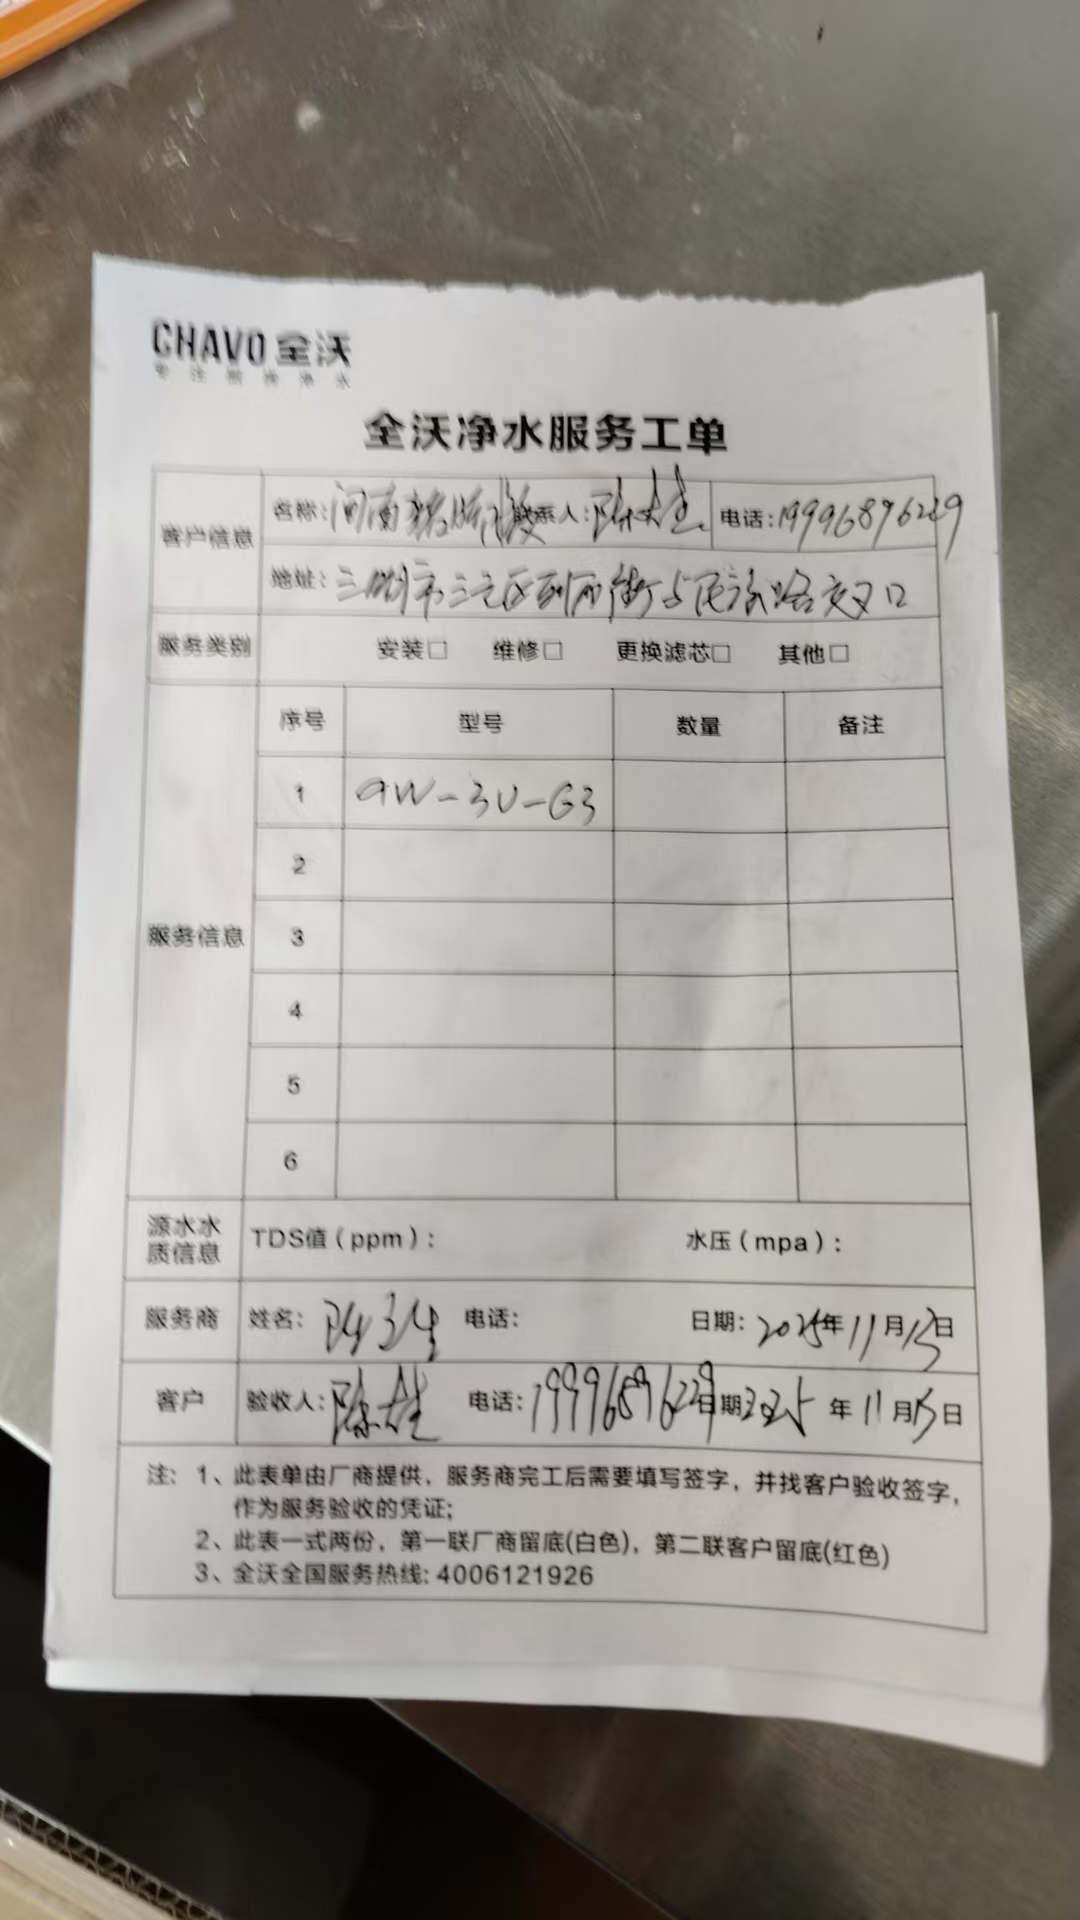 CHAVO 全沃
专注商用净水
全沃净水服务工单
客户信息 名称：河南 联系人：陈 电话：19996896229
地址：三明市三元区列西街与 路交叉口
服务类别 安装□ 维修□ 更换滤芯□ 其他□
服务信息
序号 型号 数量 备注
1 QW-3U-G3
2
3
4
5
6
源水水质信息 TDS值（ppm）： 水压（mpa）：
服务商 姓名： 电话： 日期：2025年11月15日
客户 验收人：陈 电话：19996896229 日期2025年11月15日
注：1、此表单由厂商提供，服务商完工后需要填写签字，并找客户验收签字，
作为服务验收的凭证；
2、此表一式两份，第一联厂商留底(白色)，第二联客户留底(红色)
3、全沃全国服务热线：4006121926